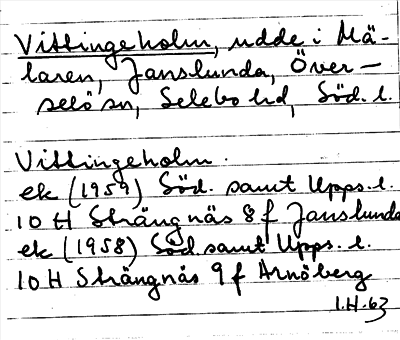 Vittingeholm, udde i Mä-
laren, Janslunda, Över-
selö sn, Selebo hd, Söd. l.
Vittingeholm.
ek (1959) Söd. samt Upps. l.
10 H Strängnäs 8 f Janslunda
ek (1958) Söd. samt Upps. l.
10 H Strängnäs 9 f Arnöberg
I.H. 63